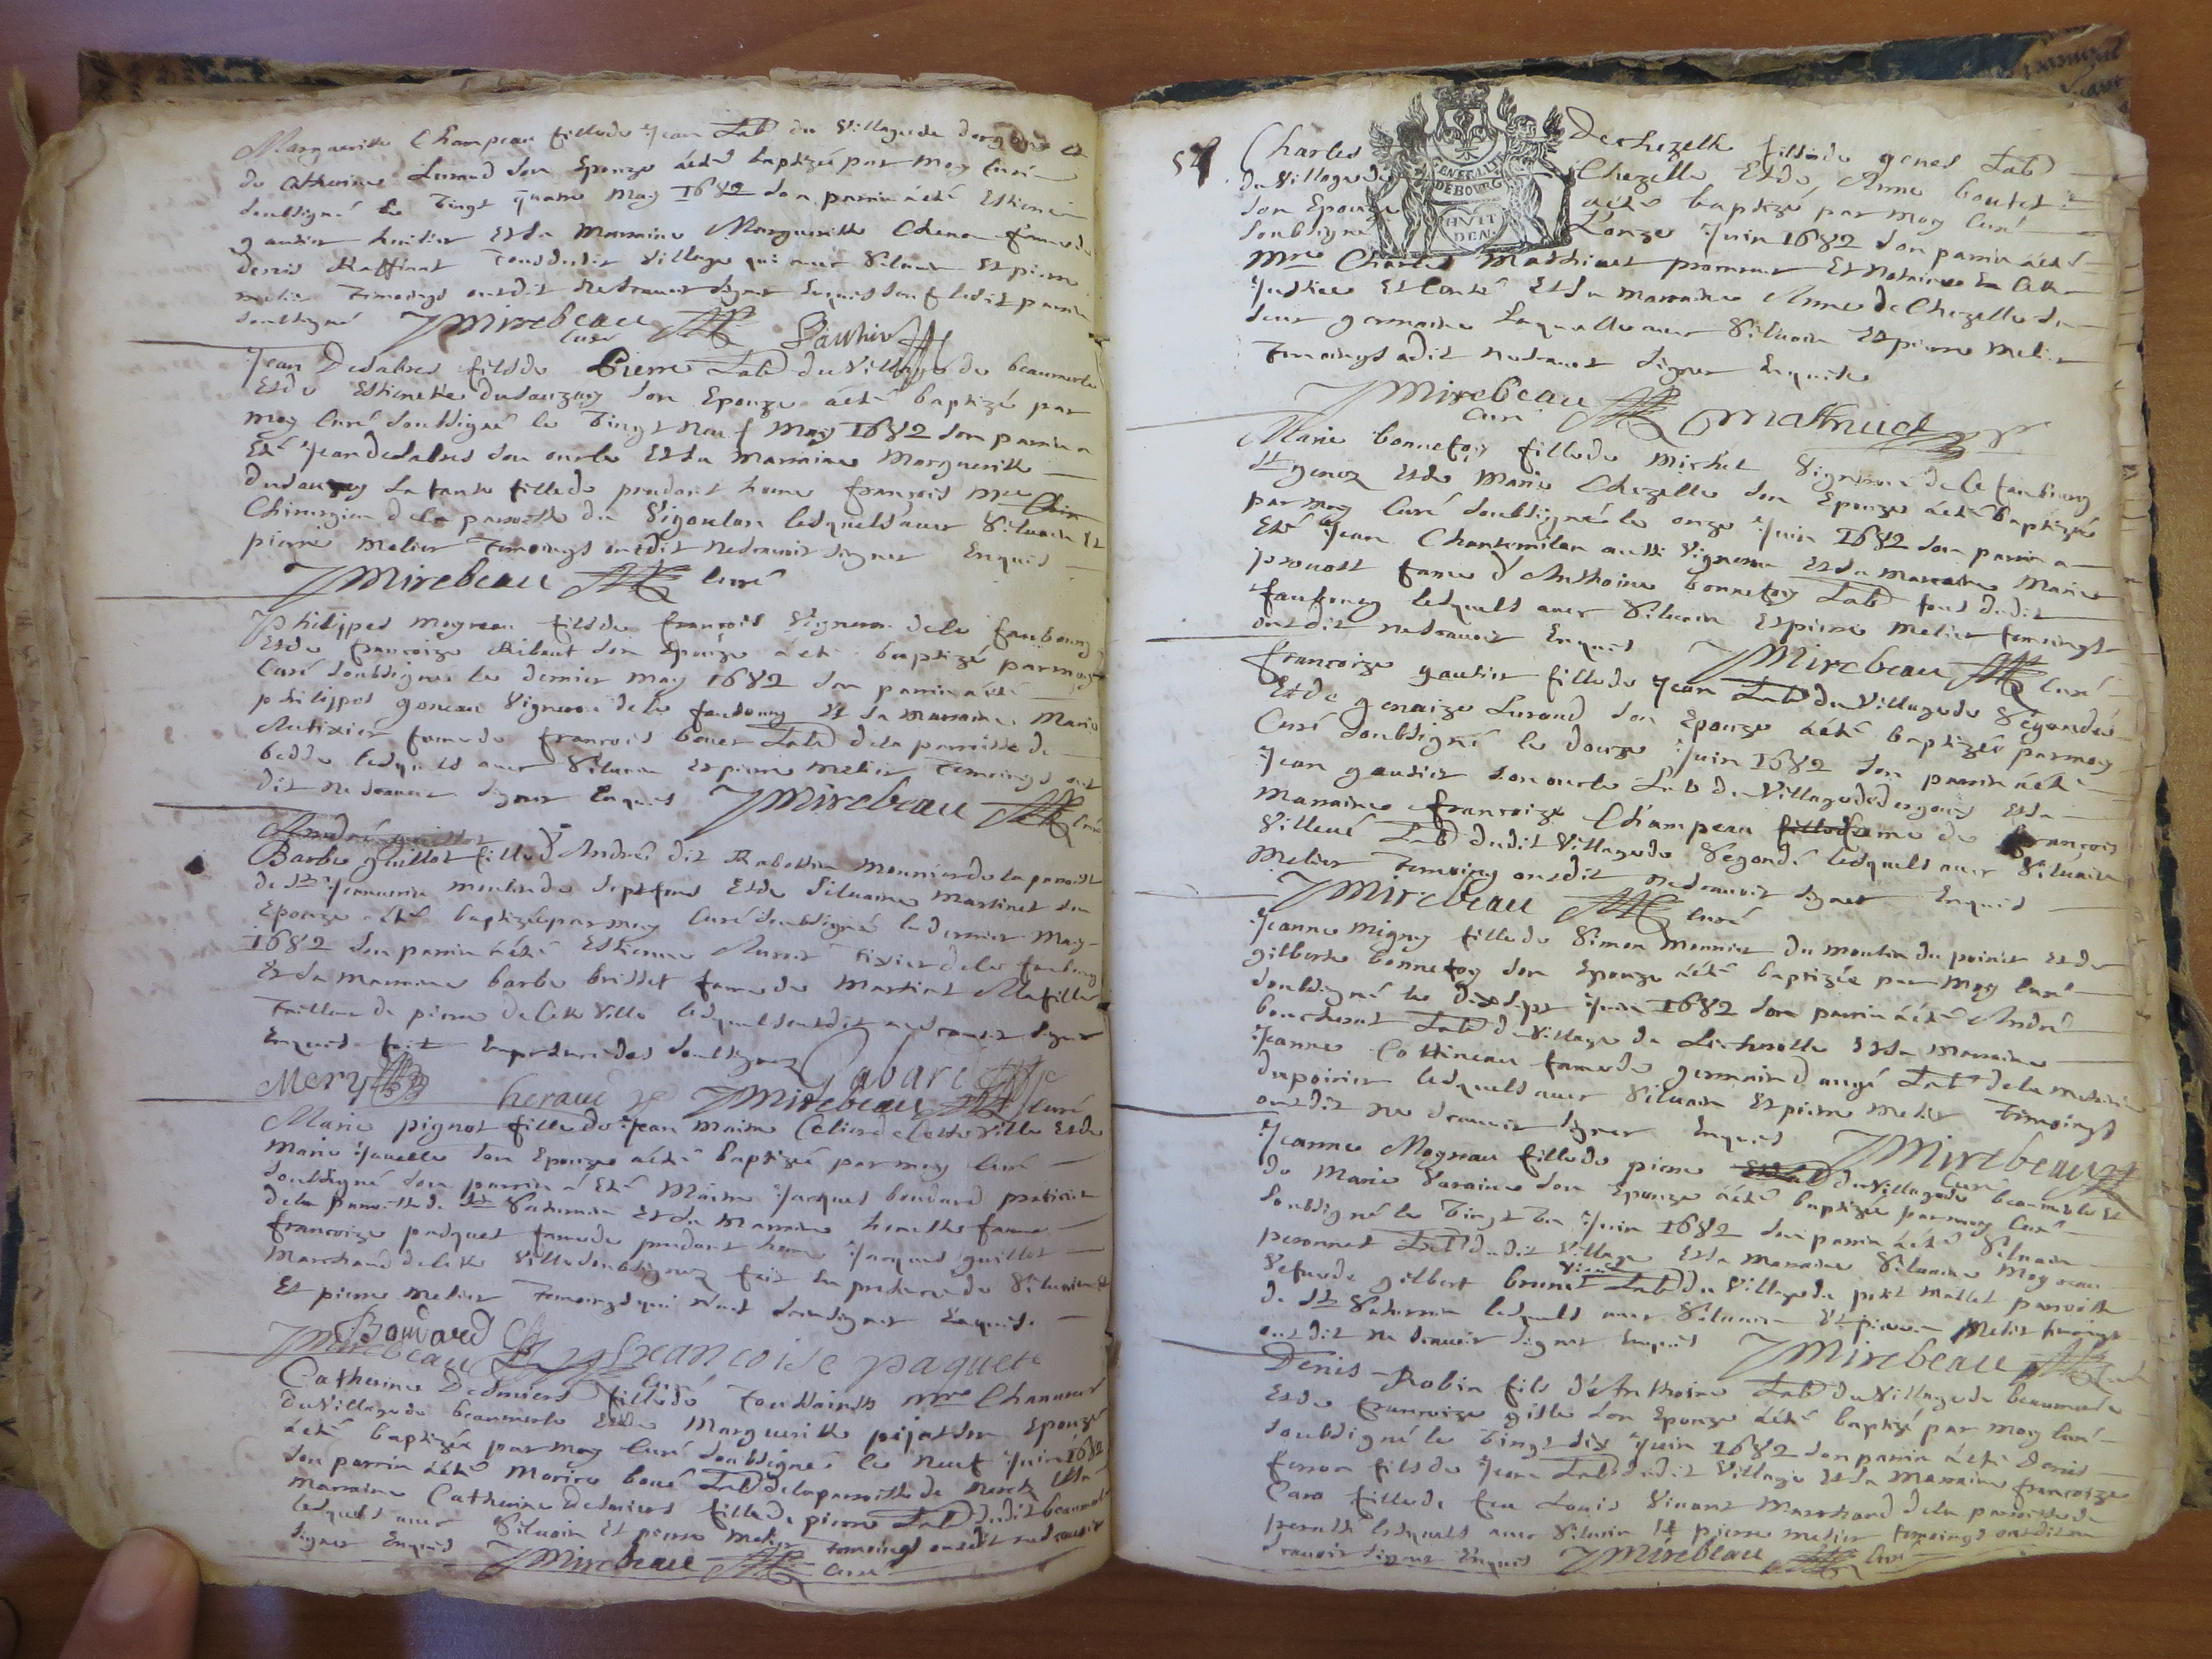 Marguerite Champeau fille de Jean Lab du Village de dergong et
de Catherine Lurand son Epouze a été baptizée par moy Curé
soubsigné le Vingt quatre May 1682 son parrin a été Estienne
gautier huilier Et sa Marraine Marguerite Chenon fame de
denis Raffinat tous dudit Village qui avec Siluain Et pierre
melier temoings ont dit ne scavoir signer Enquis sauf ledit parrin
soubsigné JMirebeau Curé Gauthier
Jean Desabres fils de Pierre Lab du Village de beaumerle
Et de Estienette dusauzay son Epouze a été baptizé par
moy Curé soubsigné le Vingt Neuf May 1682 son parrin a
Eté Jean Desabres son oncle Et sa Marraine Marguerite
dusauzay sa tante fille de prudant home françois Mre
Chirurgien de la paroisse de Vigoulan lesquels avec Siluain Et
pierre Melier temoings ont dit ne scavoir signer Enquis
JMirebeau Curé
philippes moyreau fils de françois Vigneron de le faubourg
Et de françoize Ribaut son Epouze a été baptizé par moy
Curé soubsigné le dernier May 1682 son parrin a été
philippes goneau Vigneron de le faubourg Et sa marraine Marie
Autixier fame de françois bouer Lab de la paroisse de
bedde lesquels avec Siluain Et pierre Melier temoings ont
dit ne scavoir signer Enquis JMirebeau Curé
André guillot
Barbe guillot fille d'André dit Rabottin Meunier de la paroisse
de Ste Jeanverine moulin de septfons Et de Siluaine Martinet son
Epouze a été baptizée par moy Curé soubsigné le dernier May
1682 son parrin a été Estienne Auroir tixier de le faubourg
Et sa marraine barbe brisset fame de Martial Matille
Tailleur de pierre de Cette Ville lesquels ont dit ne scavoir signer
Enquis fait En presence des soubsignez Gabaret
Mery heraud JMirebeau Curé
Marie pignot fille de Jean Maitre Celier de Cette Ville Et de
Marie Jauelle son Epouze a été baptizée par moy Curé
soubsigné son parrin a Eté Maitre Jacques boudard praticien
de la paroisse de St Saturnin Et sa Marraine honeste fame
françoize pasquet fame de prudant home Jacques guillot
Marchand de Cette Ville soubsignez fait En presence de Siluain
Et pierre Melier temoings qui n'ont sceu signer Enquis
Bouvard
JMirebeau Curé francoise paquete
Catherine Desmiers fille de Toussaincts Mre Chanureur
du Village de beaumerle Et de Marguerite pijat son Epouze
a été baptizée par moy Curé soubsigné le Neuf Juin 1682
son parrin a été Morice boué Lab de la paroisse de Nerets Et sa
Marraine Catherine Desmiers fille de pierre Lab dudit beaumerle
lesquels avec Siluain Et pierre Melier temoings ont dit ne scavoir
signer Enquis JMirebeau Curé
54 Charles Dechezelle fils de genes Lab
du Village de Chezelle Et de Anne boutet
son Epouze a été baptizé par moy Curé
soubsigné L'onze Juin 1682 son parrin a été
GENERLITE
DE BOVRG
HVIT
DEN.
Mre Charles Mathiuet procureur Et Notaire En Cette
Justice Et Conté Et sa marraine Anne de Chezelle sa
seur germaine laquelle avec Siluain Et pierre Melier
Temoings a dit ne scavoir signer Enquise
JMirebeau Curé Mathiuet
Marie bonnefoy fille de Michel Vigneron de le faubourg
St genoz Et de Marie Chezelle son Epouze a été baptizée
par moy Curé soubsigné le onze Juin 1682 son parrin a
Eté Jean Chantemilan aussi Vigneron Et sa marraine Marie
prouost fame d'Anthoine bonnefoy Lab tous dudit
faubourg lesquels avec Siluain Et pierre Melier temoings
ont dit ne scavoir Enquis JMirebeau Curé
françoize gautier fille de Jean Lab du Village de Segondé
Et de genaize Lurand son Epouze a été baptizée par moy
Curé soubsigné le douze Juin 1682 son parrin a été
Jean gautier son oncle Lab du Village de dergong Et sa
Marraine françoize Champeau fille fame de françois
Villeué Lab dudit Village de Segondé lesquels avec Siluain
Melier temoing ont dit ne scavoir signer Enquis
JMirebeau Curé
Jeanne Migny fille de Simon Meunier du moulin du poirier Et de
gilberte bonnefoy son Epouze a été baptizée par moy Curé
soubsigné le dix sept Juin 1682 son parrin a été André
boucherat Lab du Village de Lecherolle Et sa Marraine
Jeanne Cottineau fame de germain d'augé Lab de la metairie
du poirier lesquels avec Siluain Et pierre Melier temoings
ont dit ne scavoir signer Enquis JMirebeau Curé
Jeanne Moyreau fille de pierre Lab du Village de beaumerle Et
de Marie Varaine son Epouze a été baptizée par moy Curé
soubsigné le Vingt Un Juin 1682 son parrin a été Siluain
peronnet Lab dudit Village Et sa Marraine Siluaine Moyreau
Vefue de gilbert brunet Viuant Lab du Village du petit Mallet paroisse
de St Saturnin lesquels avec Siluain Et pierre Melier temoings
ont dit ne scavoir signer Enquis JMirebeau Curé
Denis Robin fils d'Anthoine Lab du Village de beaumerle
Et de françoize gille son Epouze a été baptizé par moy Curé
soubsigné le Vingt six Juin 1682 son parrin a été Denis
ferron fils de Jean Lab dudit Village Et sa Marraine françoize
Caro fille de feu Louis Viuant Marchand de la paroisse de
perassé lesquels avec Siluain Et pierre Melier temoings ont dit ne
scavoir signer Enquis JMirebeau Curé